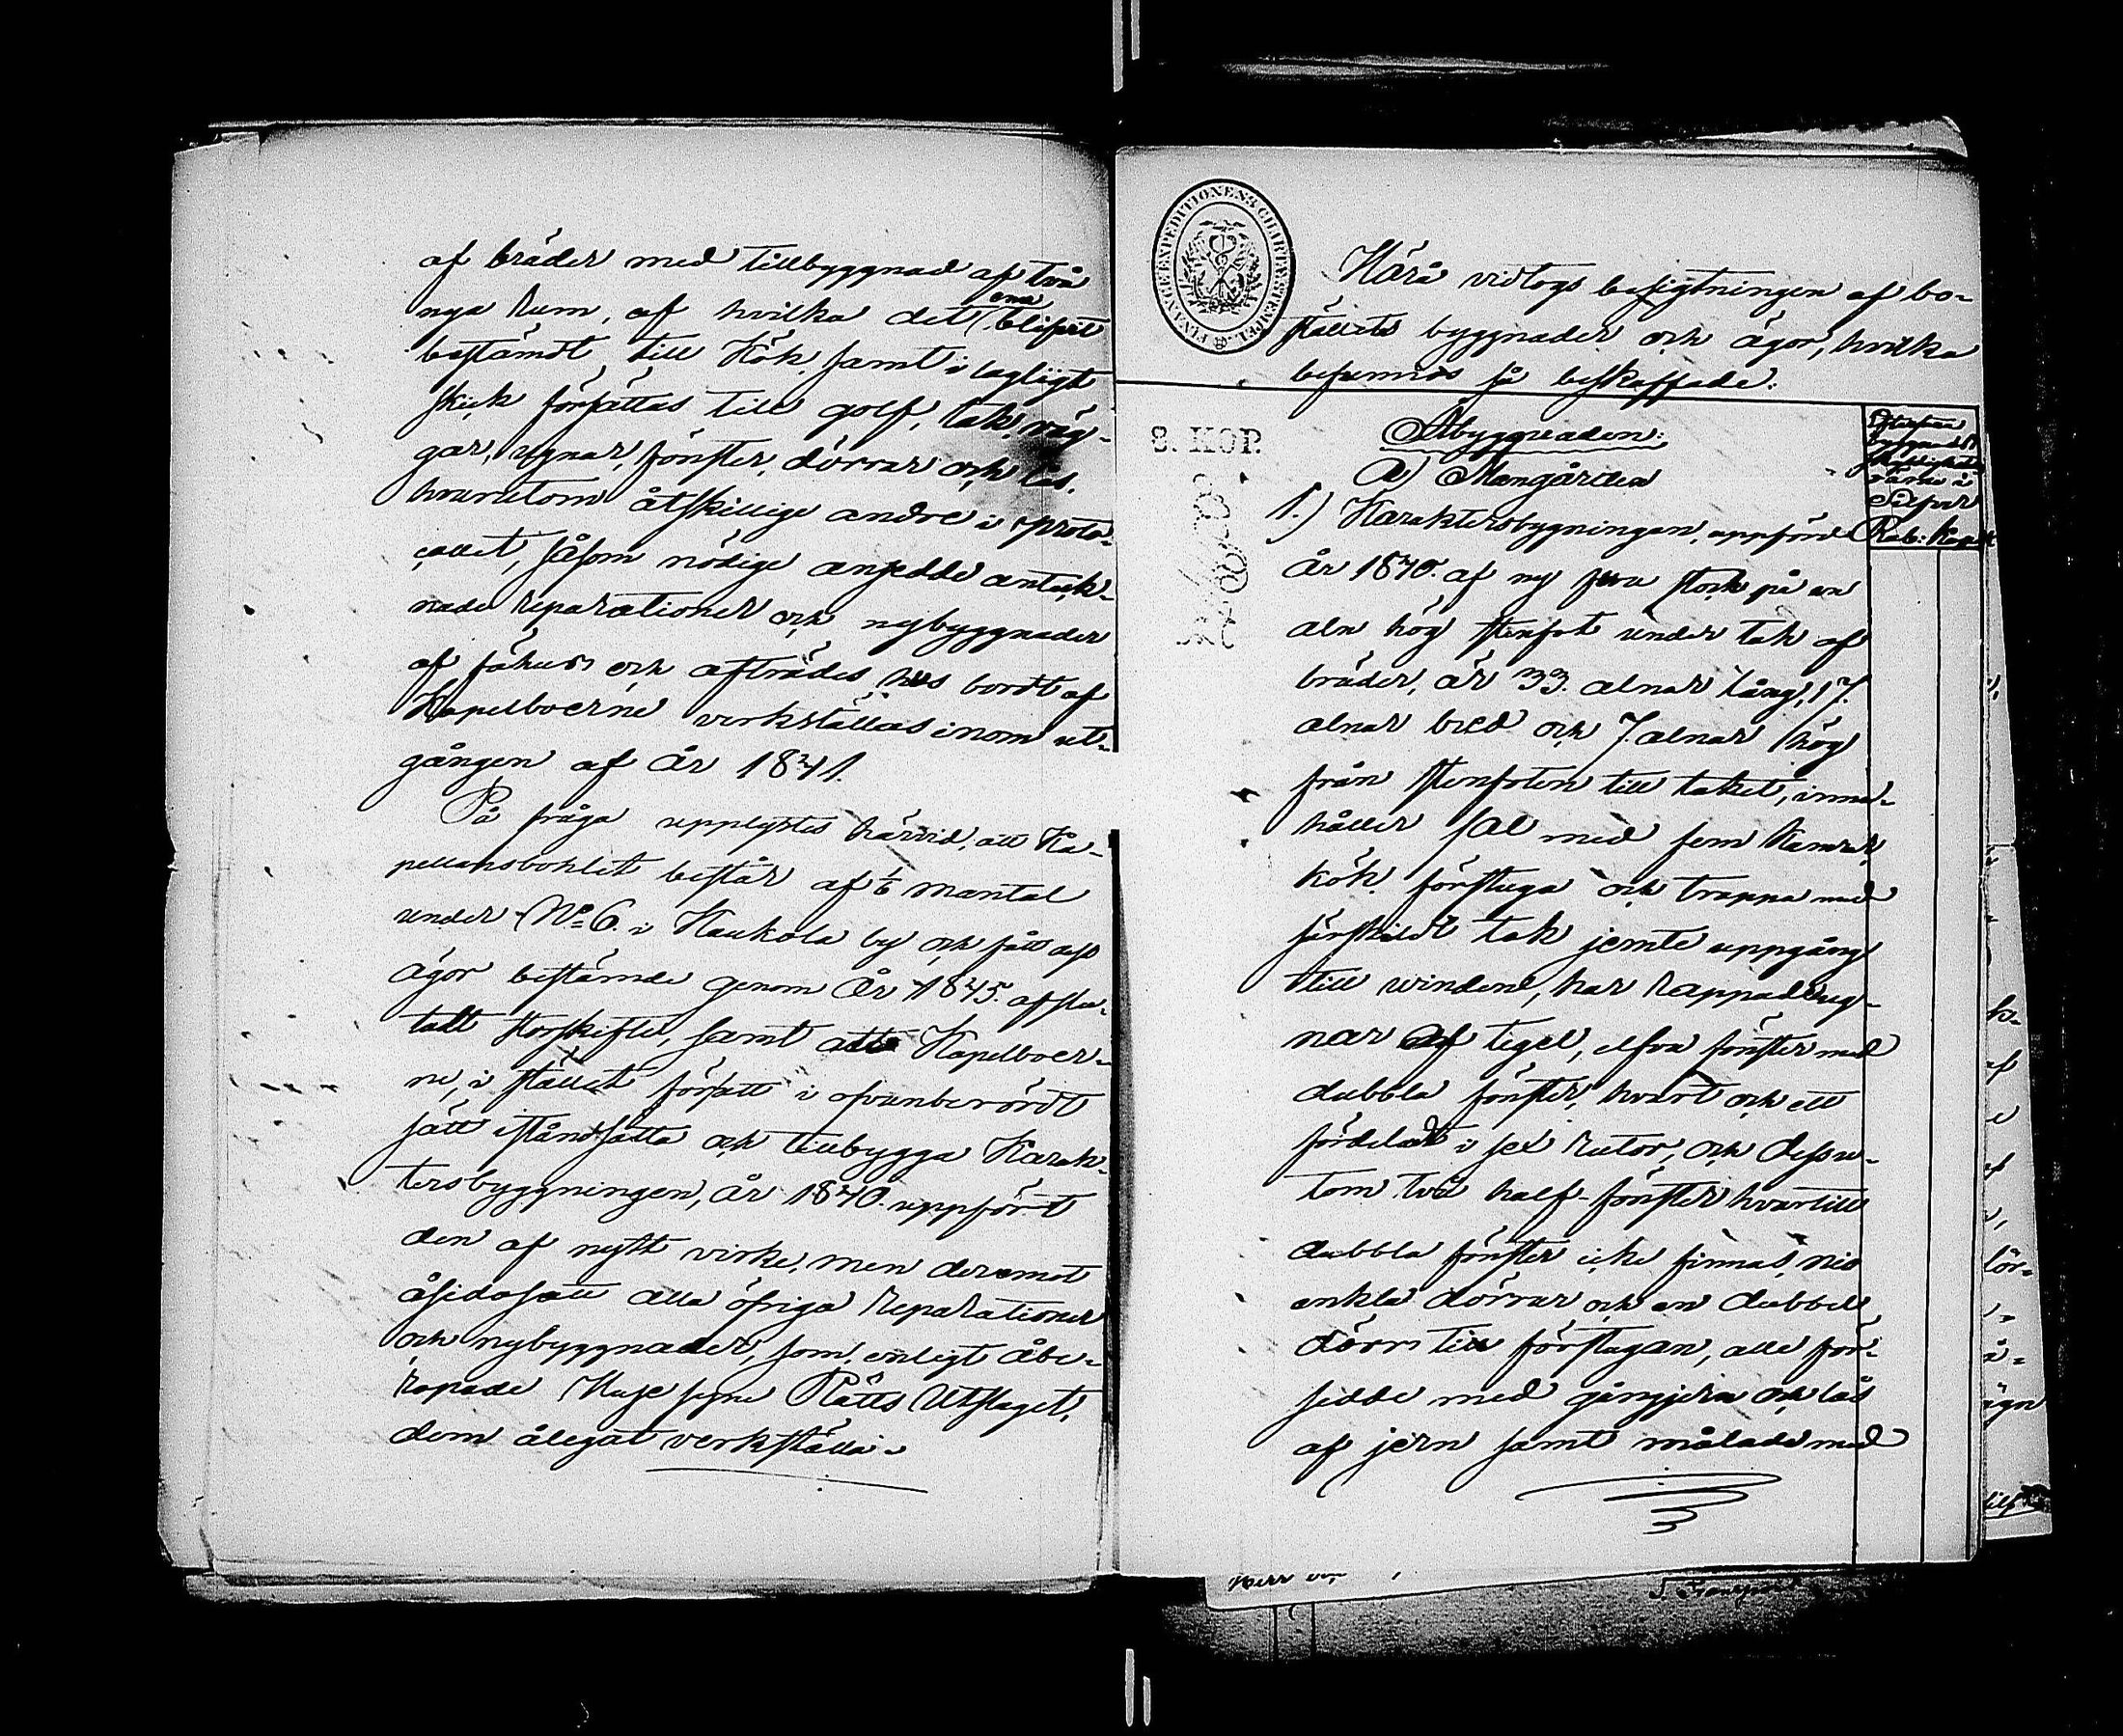 af bräder med tillbyggnad af två
nya Rum, af hvilka det ena blifvit
bestämdt till Kök, samt i lagligt
skick försättas till golf, tak, väg-
gar, ugnar, fönster, dörrar och lås.
hvarutom åtskillige andre i proto-
collet, såsom nödige ansedde anteck-
nade reparationer och nybyggnader
af fähus och afträdes hus bordt af
Kapelboerne verkställas inom ut-
gången af år 1841.
På fråga upplystes härvid, att Ka-
pellansbohlet består af 1/6 mantal
under No 6 i Kaukola by och fått dess
ägor bestämde genom år 1845. afslu-
tadt storskifte, samt att Kapelboer-
ne, i stället försätt i ofvanberördt
sätt iståndsätta och tillbygga Karak-
tersbyggningen, år 1840. uppfört
den af nytt virke, men deremot
åsidosatt alla öfriga reparationer
och nybyggnader, som, enligt åbe-
ropade Husesyne Rätts Utslaget,
dem ålegat verkställa.
FINANCE EXPEDITIONENS CHARTÆ STEMPEL
Härå vidtogs besigtningen af bo-
ställets byggnader och ägor, hvilka
befunnos så beskaffade:
8. KOP.
Åbyggnaden:
a) Mangården
värde i
Silfver
Rub: Kop:
1.) Karaktersbygningen, uppförd
år 1840. af ny furu stock på en
aln hög stenfot under tak af
bräder, är 33. alnar lång, 17.
alnar bred och 7. alnar hög
från stenfoten till taket, inne-
håller sal med fem Kamrar,
kök, förstuga och trappa med
särskildt tak jemte uppgång
till winden, har rappade ug-
nar af tegel, elfva fönster med
dubbla fönster, hvart och ett
fördeladt i sex rutor, och dessu-
tom två half-fönster hvartill
dubbla fönster icke finnas, nio
enkla dörrar och en dubbel
dörr till förstugan, alle för-
sedde med gångjern och lås
af jern samt målade med